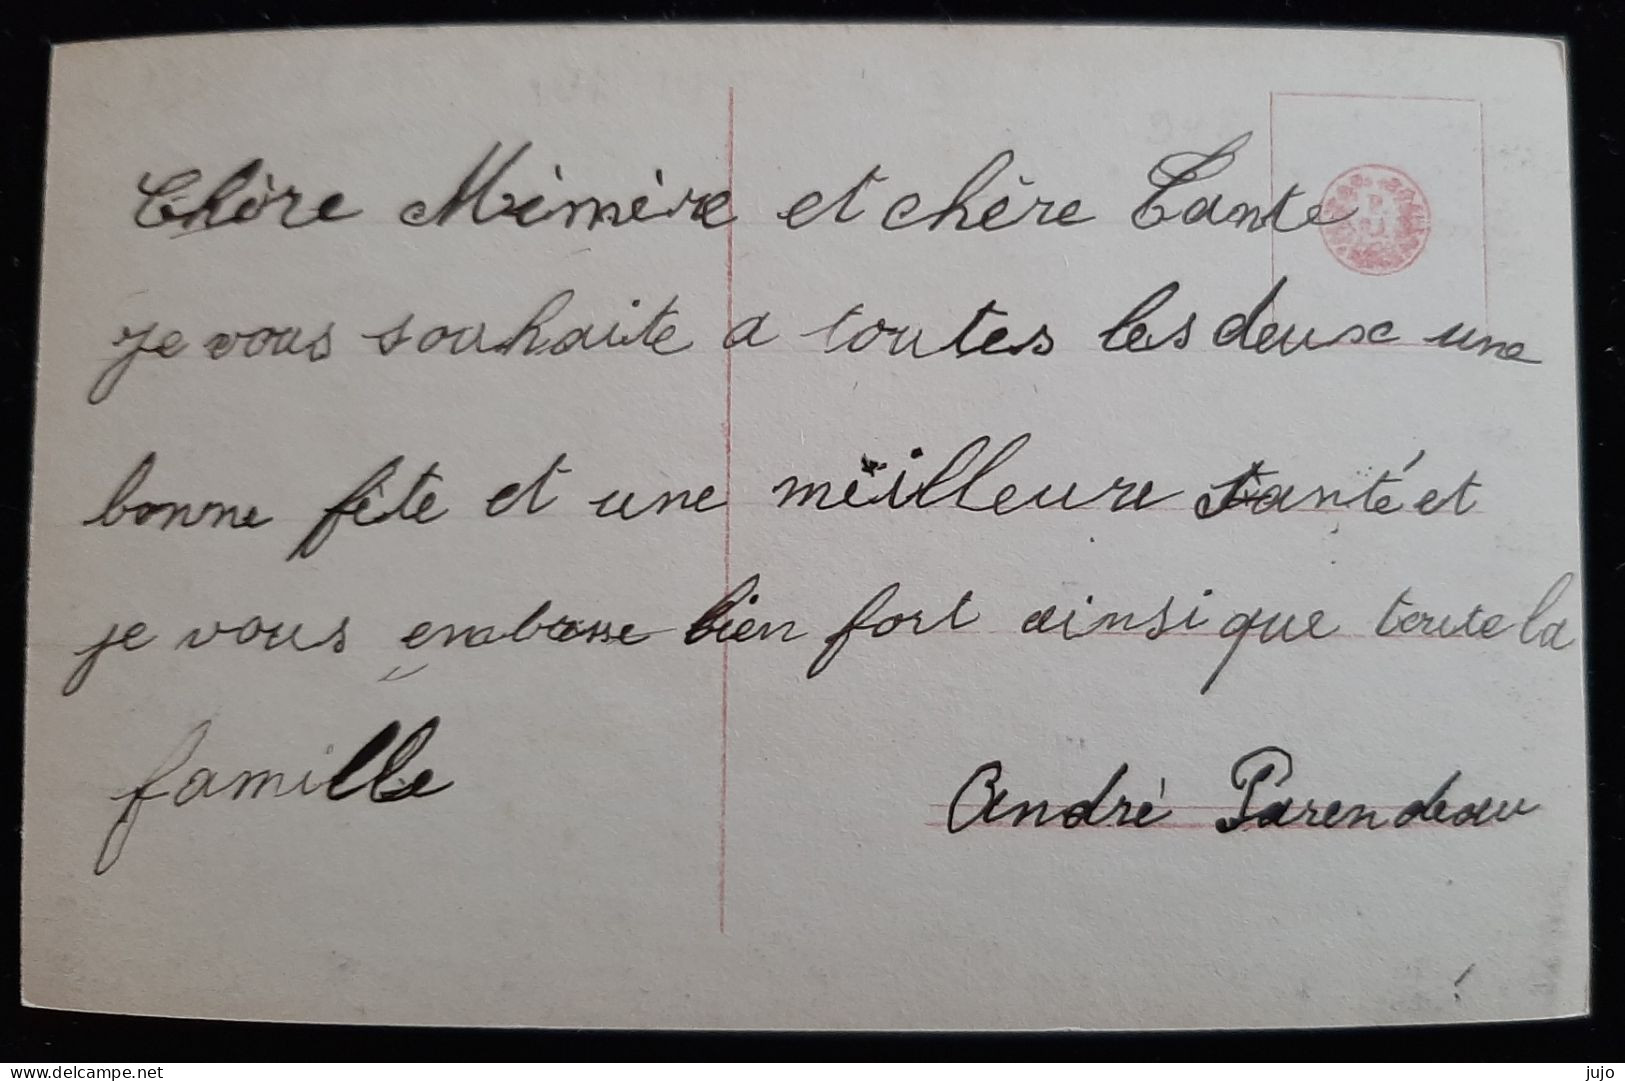 Chère Mémère et chère Tante
je vous souhaite a toutes les deux une
bonne fête et une meilleure santé et
je vous embrasse bien fort ainsi que toute la
famille
André Parendeau
delcampe.net
jujo